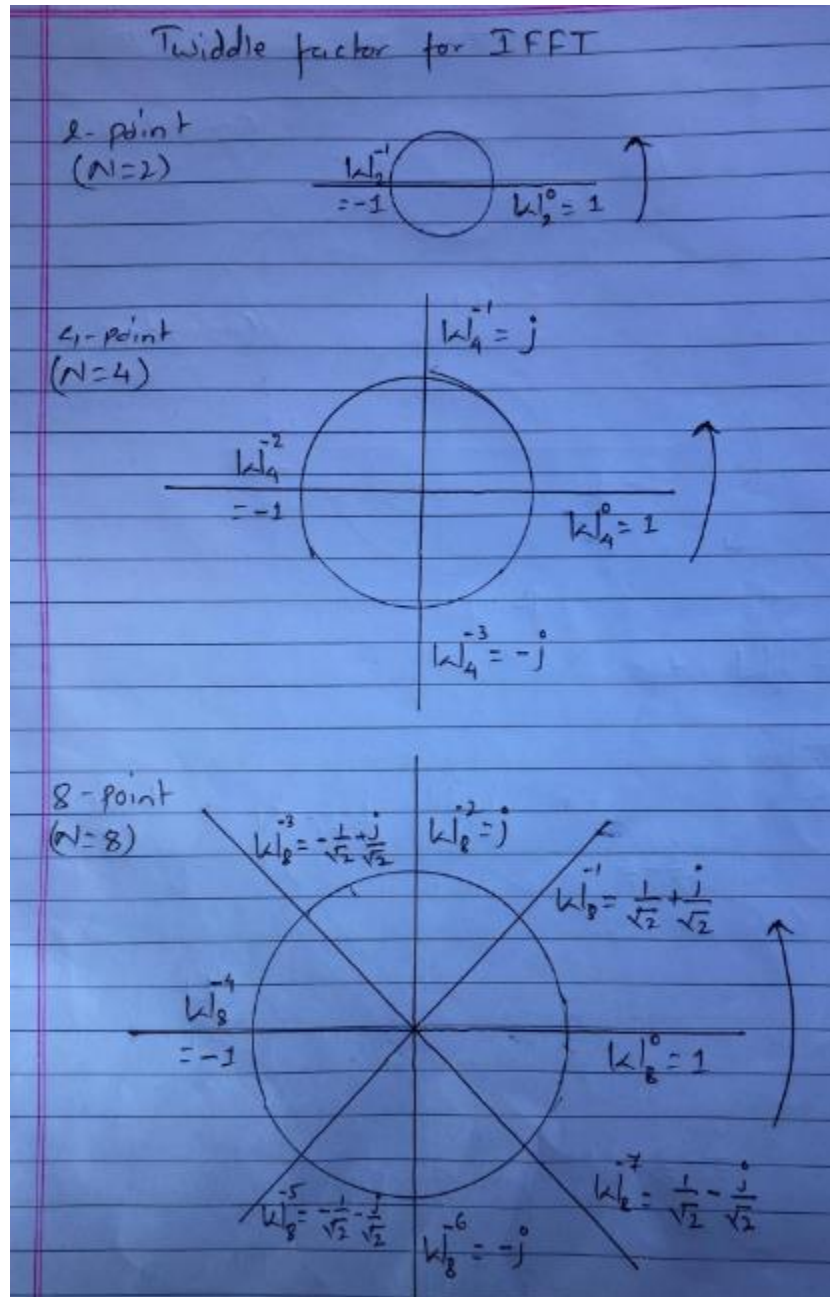 Twiddle factor for IFFT
2-point
(N=2)
W₂⁻¹
=-1
W₂⁰ = 1
4-point
(N=4)
W₄⁻¹ = j
W₄⁻²
=-1
W₄⁰ = 1
W₄⁻³ = -j
8-point
(N=8)
W₈⁻³ = -1/√2 + j/√2
W₈⁻² = j
W₈⁻¹ = 1/√2 + j/√2
W₈⁻⁴
=-1
W₈⁰ = 1
W₈⁻⁵ = -1/√2 - j/√2
W₈⁻⁶ = -j
W₈⁻⁷ = 1/√2 - j/√2